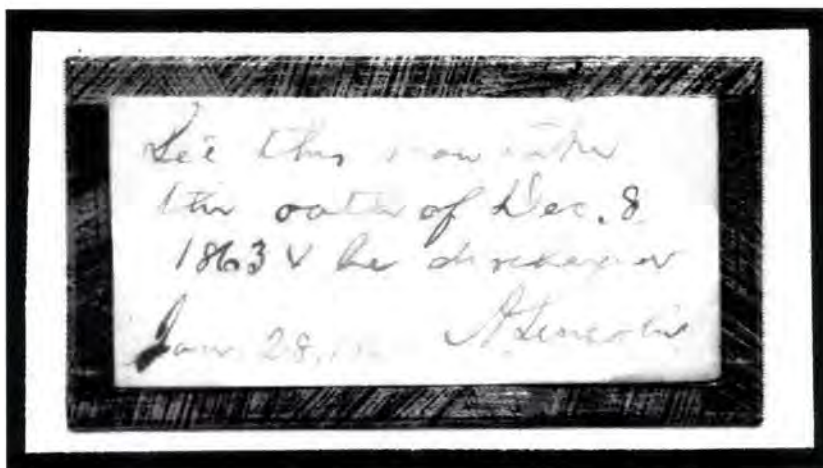 Let this man take
the oath of Dec. 8
1863 & be discharged
Jan. 28, A. Lincoln